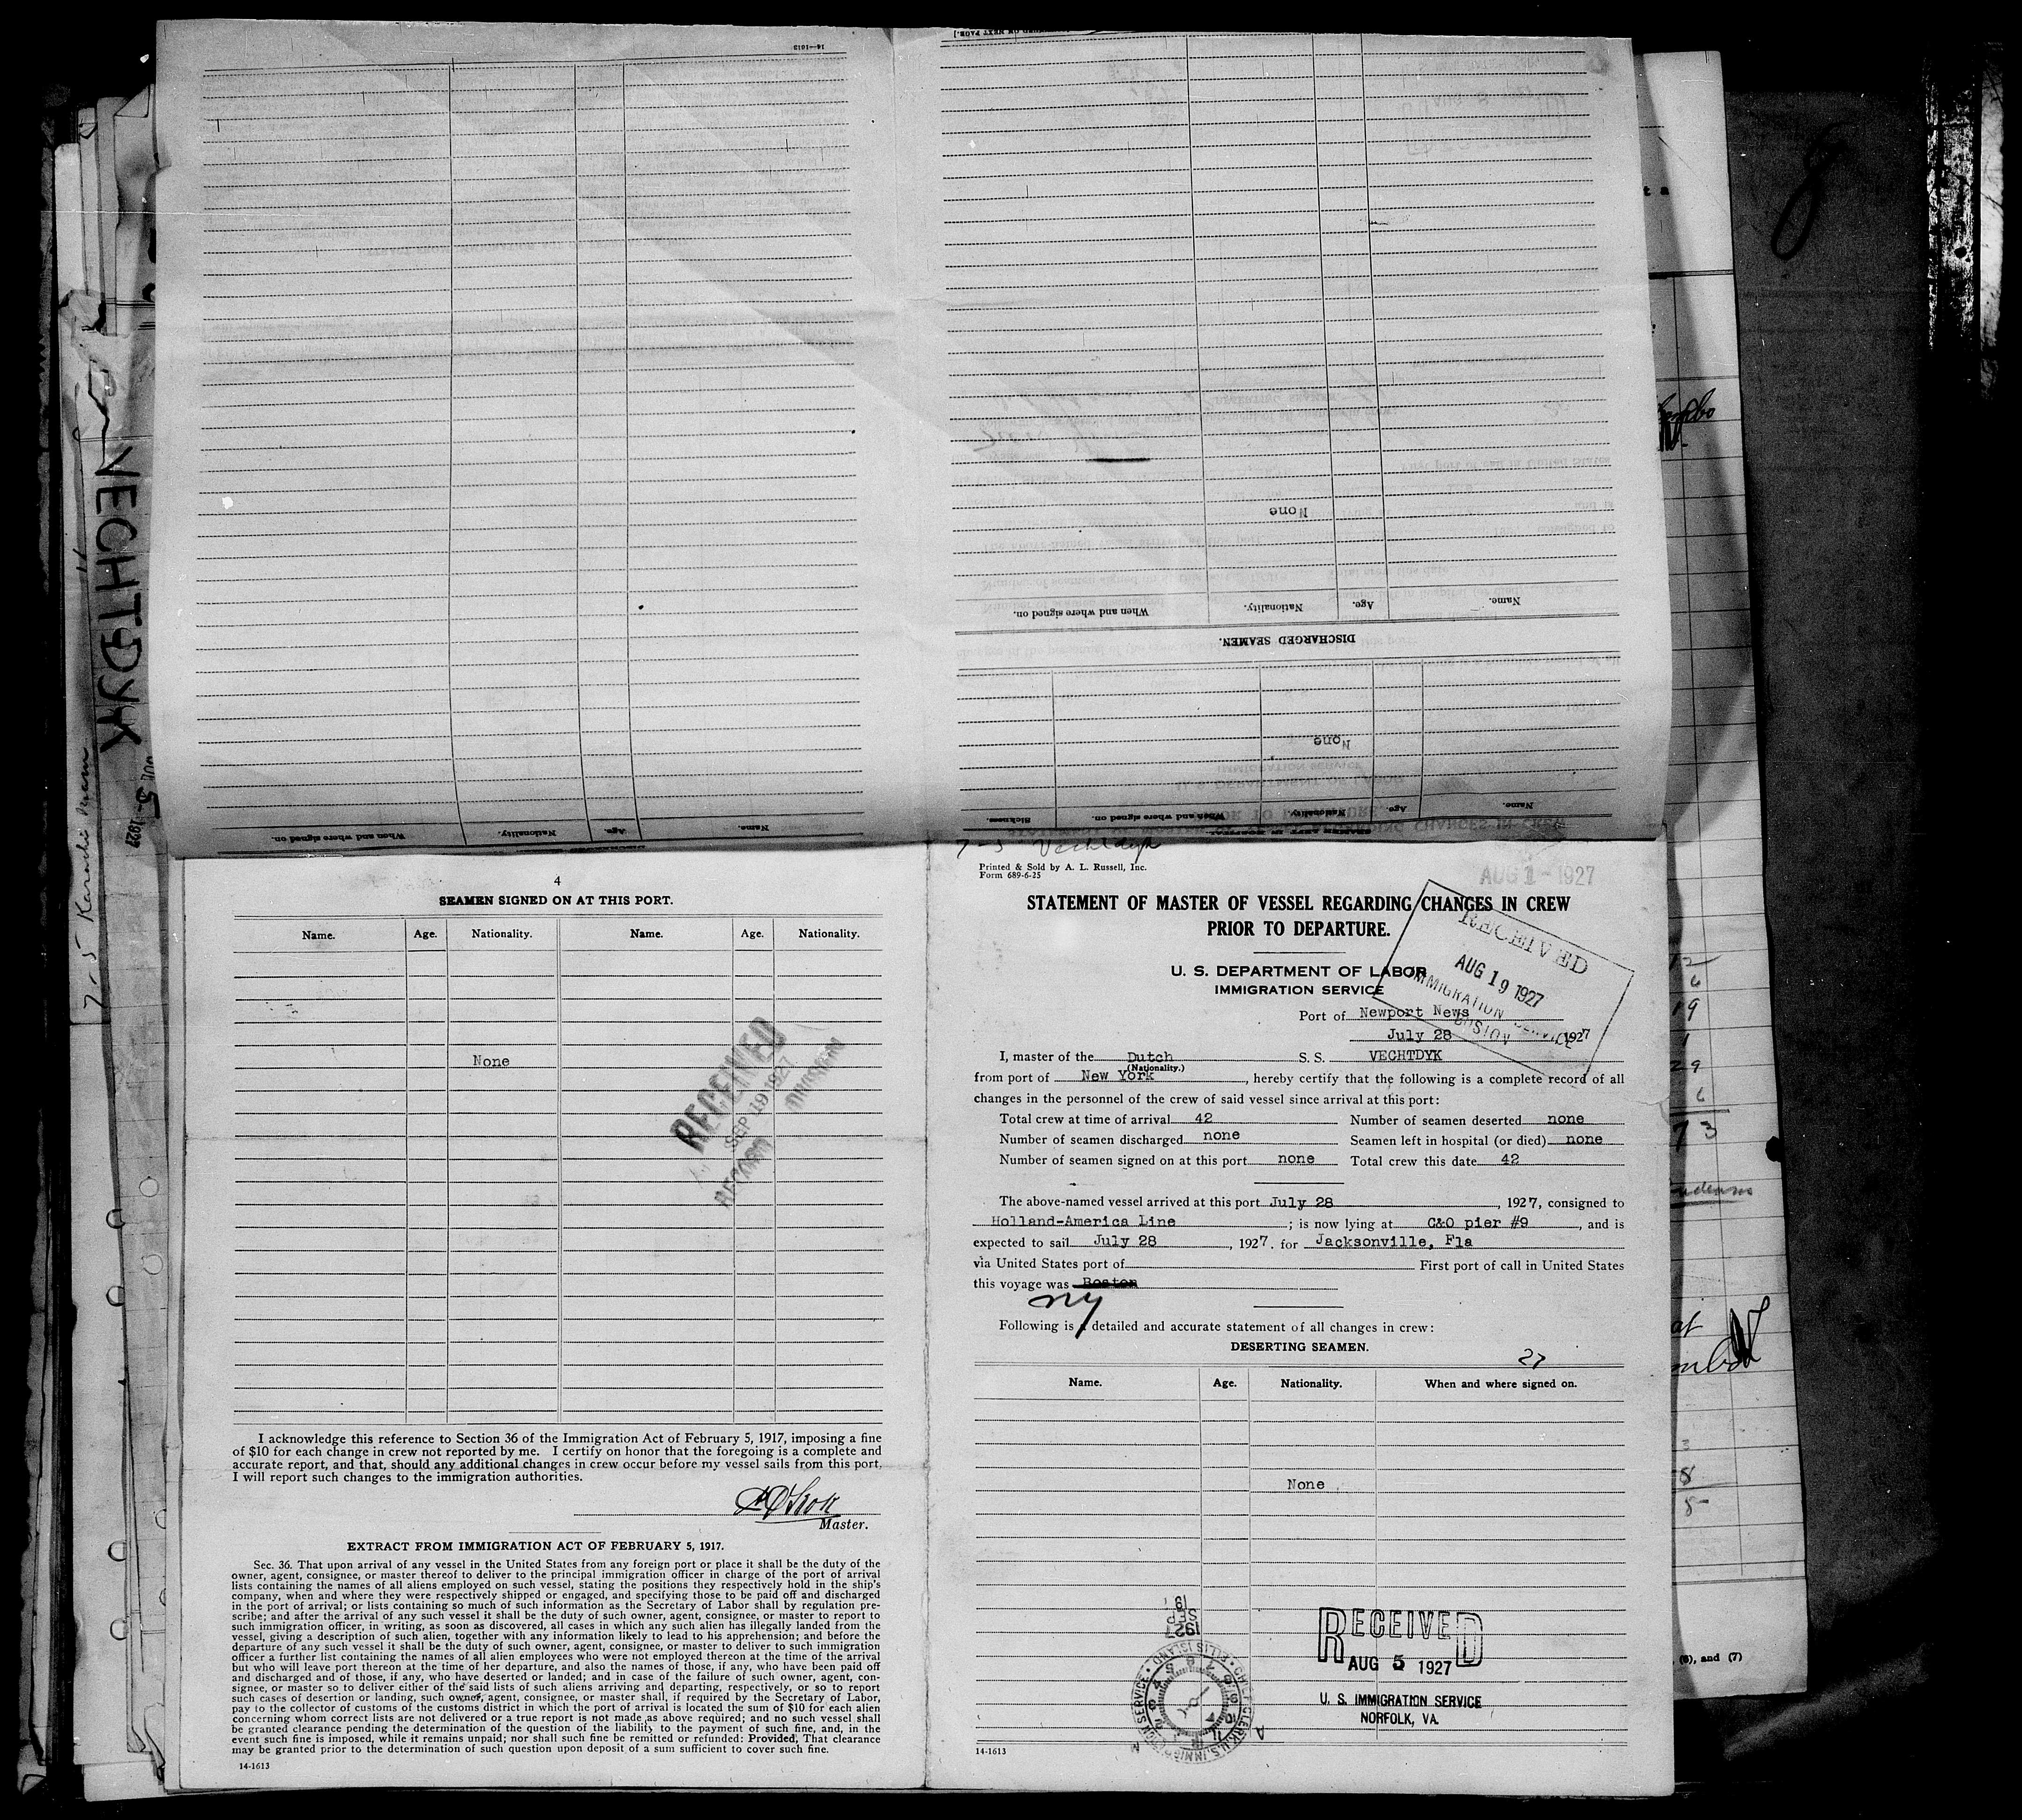 14-1613
DISCHARGED SEAMEN.
Name. Age. Nationality. When and where signed on.
None
Name. Age. Nationality. When and where signed on. Sickness.
None
Name. Age. Nationality. When and where signed on.
VECHTDYK
7-5 Karachi
4
SEAMEN SIGNED ON AT THIS PORT.
Name. Age. Nationality. Name. Age. Nationality.
None
RECEIVED
SEP 19 1927
RECORD DIVISION
I acknowledge this reference to Section 36 of the Immigration Act of February 5, 1917, imposing a fine
of $10 for each change in crew not reported by me. I certify on honor that the foregoing is a complete and
accurate report, and that, should any additional changes in crew occur before my vessel sails from this port,
I will report such changes to the immigration authorities.
Master.
EXTRACT FROM IMMIGRATION ACT OF FEBRUARY 5, 1917.
Sec. 36. That upon arrival of any vessel in the United States from any foreign port or place it shall be the duty of the
owner, agent, consignee, or master thereof to deliver to the principal immigration officer in charge of the port of arrival
lists containing the names of all aliens employed on such vessel, stating the positions they respectively hold in the ship's
company, when and where they were respectively shipped or engaged, and specifying those to be paid off and discharged
in the port of arrival; or lists containing so much of such information as the Secretary of Labor shall by regulation pre-
scribe; and after the arrival of any such vessel it shall be the duty of such owner, agent, consignee, or master to report to
such immigration officer, in writing, as soon as discovered, all cases in which any such alien has illegally landed from the
vessel, giving a description of such alien, together with any information likely to lead to his apprehension; and before the
departure of any such vessel it shall be the duty of such owner, agent, consignee, or master to deliver to such immigration
officer a further list containing the names of all alien employees who were not employed thereon at the time of the arrival
but who will leave port thereon at the time of her departure, and also the names of those, if any, who have been paid off
and discharged and of those, if any, who have deserted or landed; and in case of the failure of such owner, agent, con-
signee, or master so to deliver either of the said lists of such aliens arriving and departing, respectively, or so to report
such cases of desertion or landing, such owner, agent, consignee, or master shall, if required by the Secretary of Labor,
pay to the collector of customs of the customs district in which the port of arrival is located the sum of $10 for each alien
concerning whom correct lists are not delivered or a true report is not made as above required; and no such vessel shall
be granted clearance pending the determination of the question of the liability to the payment of such fine, and, in the
event such fine is imposed, while it remains unpaid; nor shall such fine be remitted or refunded: Provided, That clearance
may be granted prior to the determination of such question upon deposit of a sum sufficient to cover such fine.
14-1613
7-5 Vechtdyk
Printed & Sold by A. L. Russell, Inc.
Form 689-6-25
AUG 1 - 1927
STATEMENT OF MASTER OF VESSEL REGARDING CHANGES IN CREW
PRIOR TO DEPARTURE.
RECEIVED
AUG 19 1927
IMMIGRATION SERVICE
BOSTON
U. S. DEPARTMENT OF LABOR
IMMIGRATION SERVICE
Port of Newport News
July 28 1927
I, master of the Dutch S. S. VECHTDYK
(Nationality.)
from port of New York, hereby certify that the following is a complete record of all
changes in the personnel of the crew of said vessel since arrival at this port:
Total crew at time of arrival 42 Number of seamen deserted none
Number of seamen discharged none Seamen left in hospital (or died) none
Number of seamen signed on at this port none Total crew this date 42
The above-named vessel arrived at this port July 28, 1927, consigned to
Holland-America Line; is now lying at C&O pier #9, and is
expected to sail July 28, 1927, for Jacksonville, Fla
via United States port of First port of call in United States
this voyage was Boston
NY
Following is a detailed and accurate statement of all changes in crew:
DESERTING SEAMEN.
27
Name. Age. Nationality. When and where signed on.
None
SEP
1927
CHIEF CLERK U.S. IMMIGRATION SERVICE ELLIS ISLAND
RECEIVED
AUG 5 1927
U. S. IMMIGRATION SERVICE
NORFOLK, VA.
14-1613
(6), and (7)